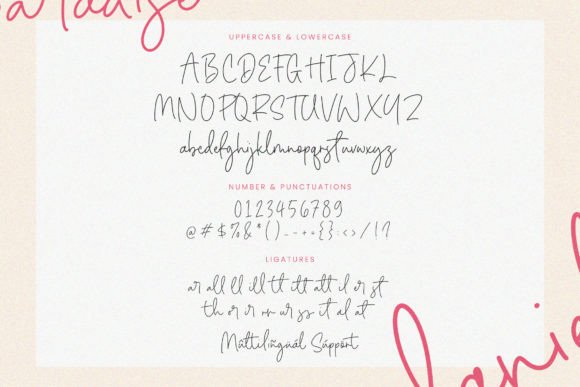 UPPERCASE & LOWERCASE
ABCDEFGHIJKL
MNOPQRSTUVWXYZ
abcdefghijklmnopqrstuvwxyz
NUMBER & PUNCTUATIONS
0123456789
@#$%&*()_-+={}:<>/!?
LIGATURES
ar all ll ill tt itt att il er st
th or ir
it al at
Mãltilïñgúál Súppört